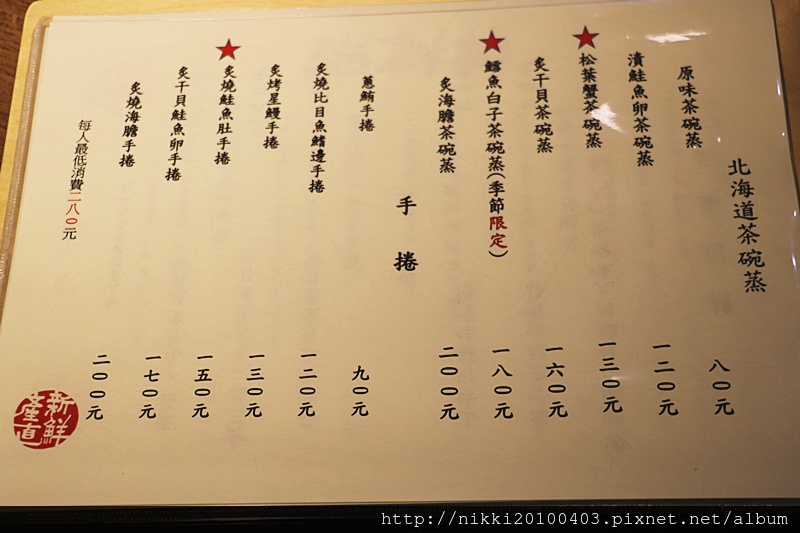 北海道茶碗蒸
原味茶碗蒸 八○元
漬鮭魚卵茶碗蒸 一二○元
松葉蟹茶碗蒸 一三○元
炙干貝茶碗蒸 一六○元
鱈魚白子茶碗蒸(季節限定) 一八○元
炙海膽茶碗蒸 二○○元
手捲
蔥鮪手捲 九○元
炙燒比目魚鰭邊手捲 一二○元
炙烤星鰻手捲 一三○元
炙燒鮭魚肚手捲 一五○元
炙干貝鮭魚卵手捲 一七○元
炙燒海膽手捲 二○○元
每人最低消費二八○元
新鮮
產直
http://nikki20100403.pixnet.net/album